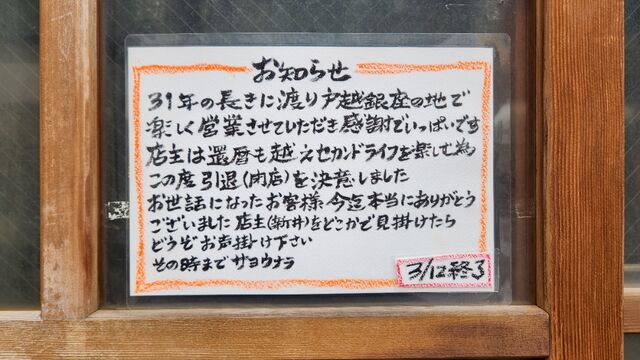 お知らせ
31年の長きに渡り戸越銀座の地で
楽しく営業させていただき感謝でいっぱいです
店主は還暦も越えセカンドライフを楽しむ為
この度引退(閉店)を決意しました
お世話になったお客様今迄本当にありがとう
ございました店主(新井)をどこかで見掛けたら
どうぞお声掛け下さい
その時までサヨウナラ
3/12終了